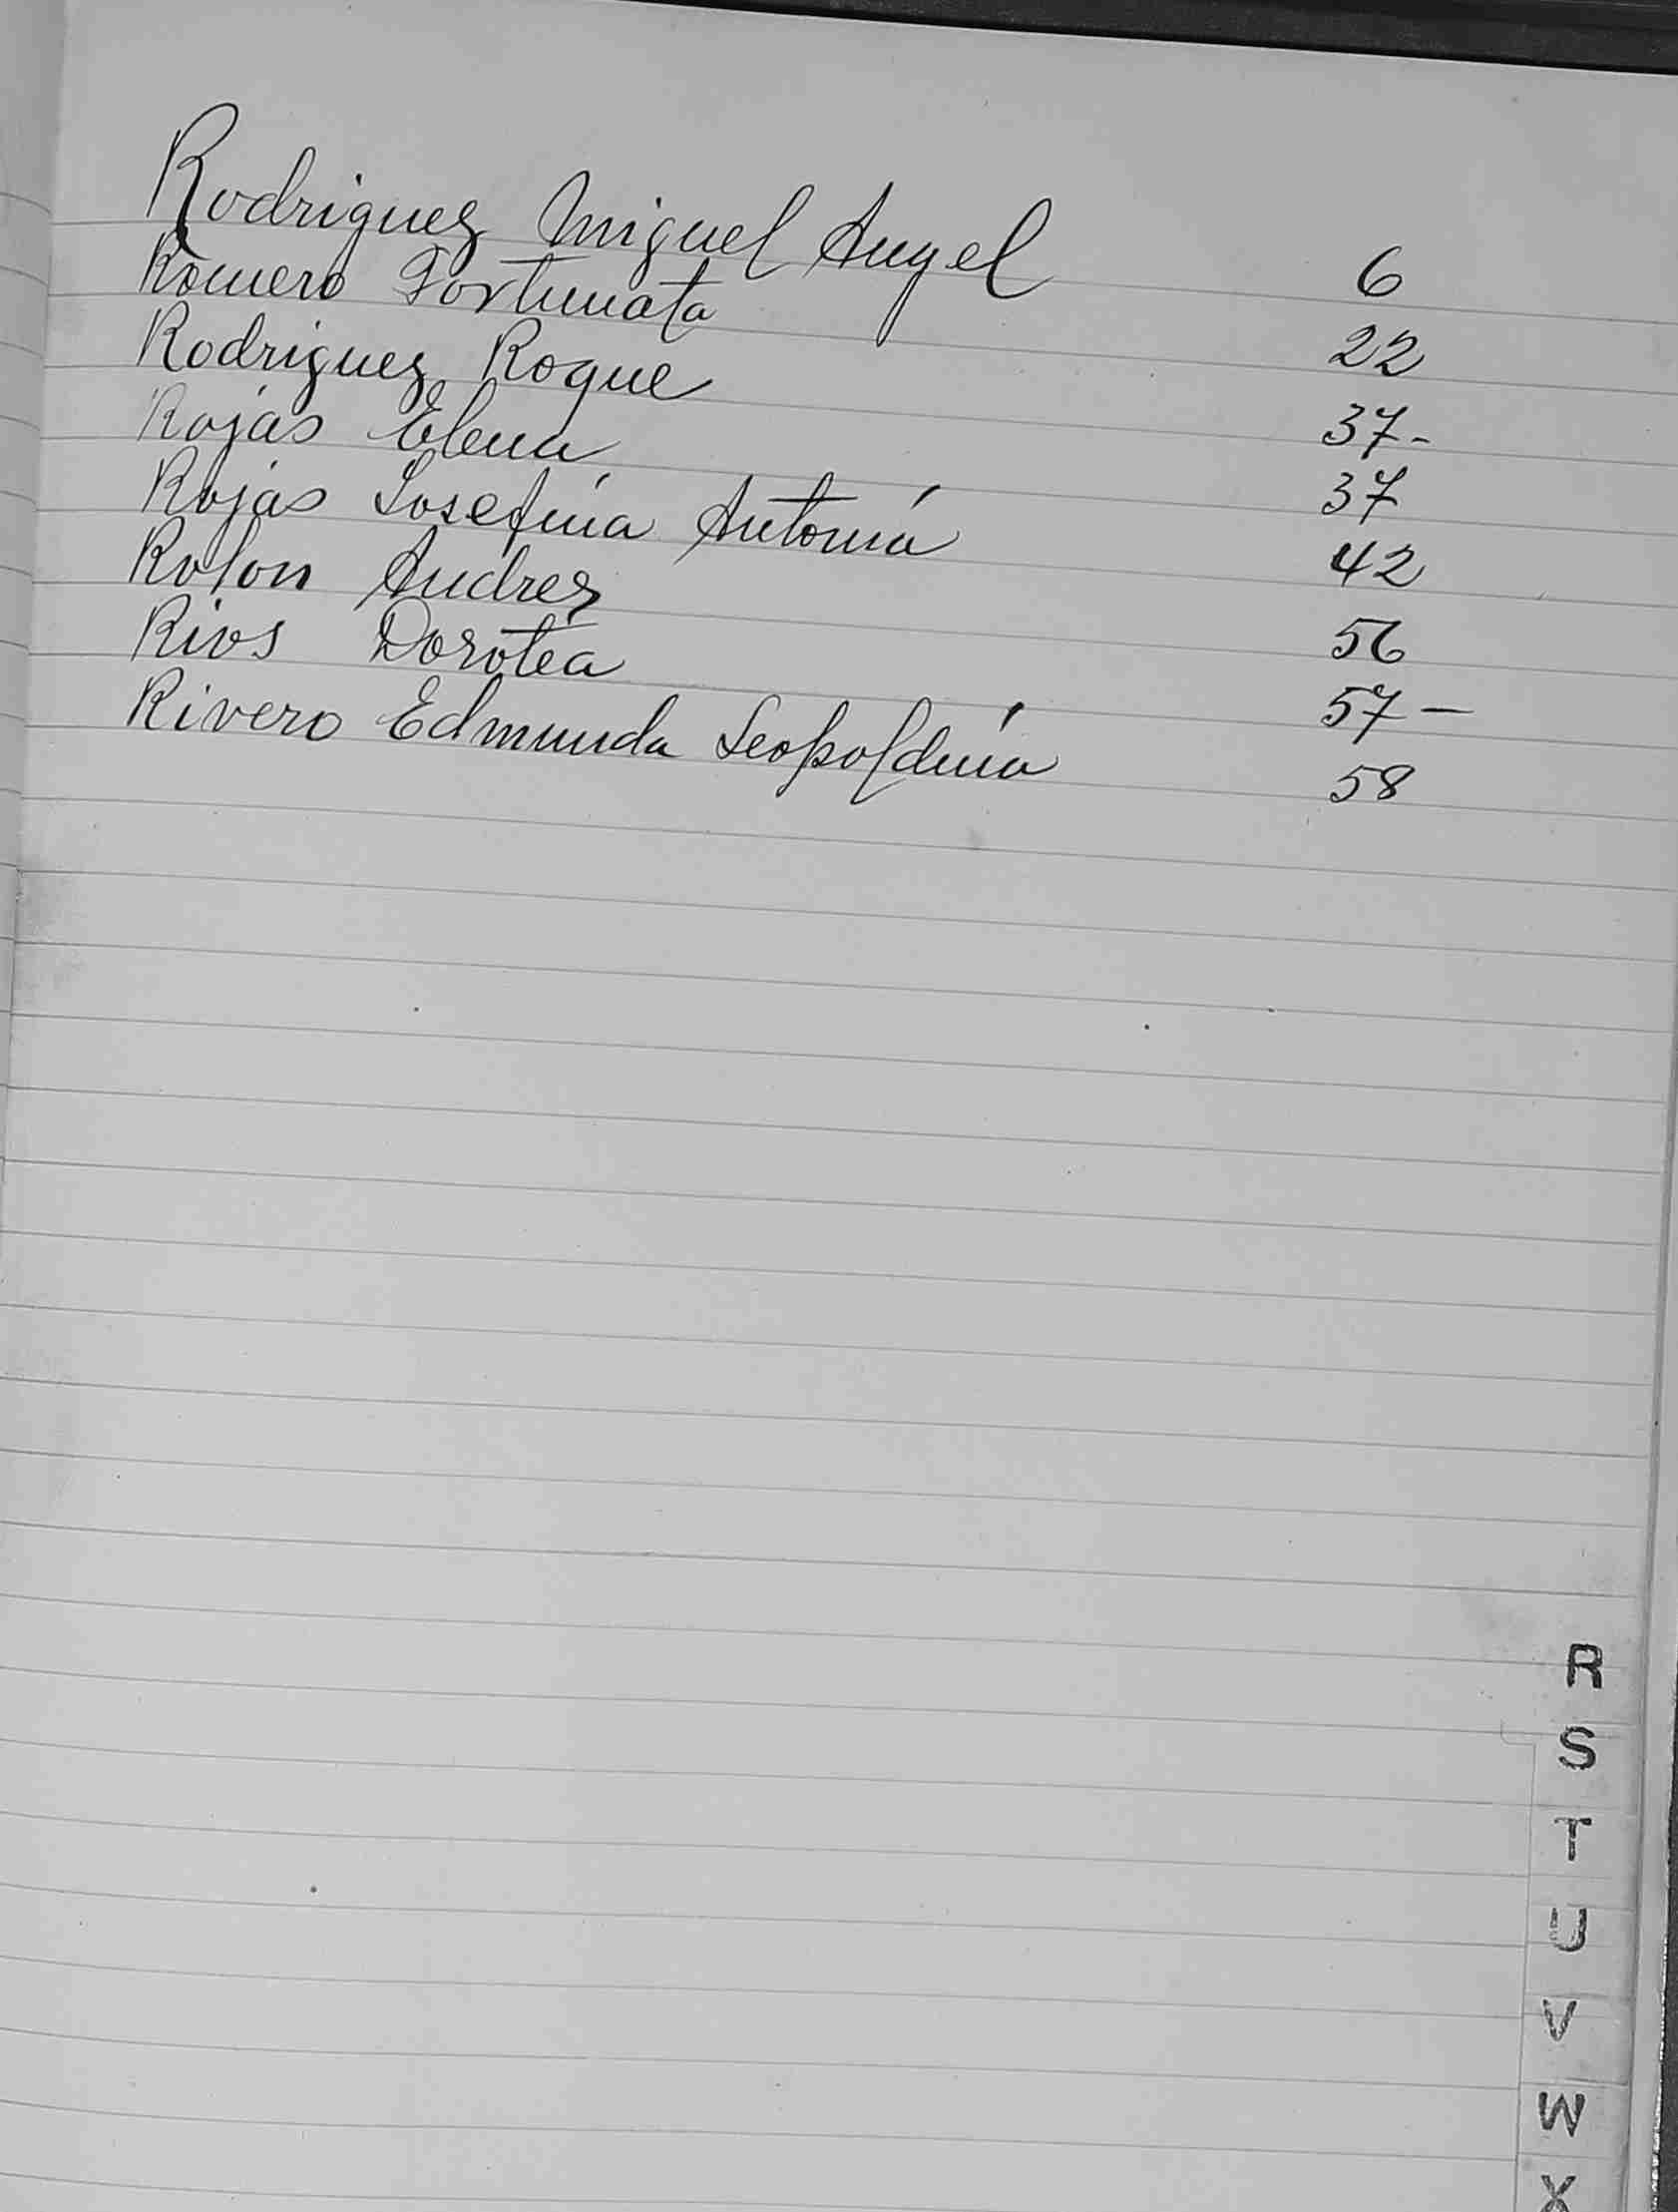 Rodriguez Miguel Angel 6
Romero Fortunata 22
Rodriguez Roque 37-
Rojas Elena 37
Rojas Josefina Antonia 42
Rolon Andrez 56
Rios Dorotea 57 —
Rivero Edmunda Leopoldina 58
R
S
T
U
V
W
X